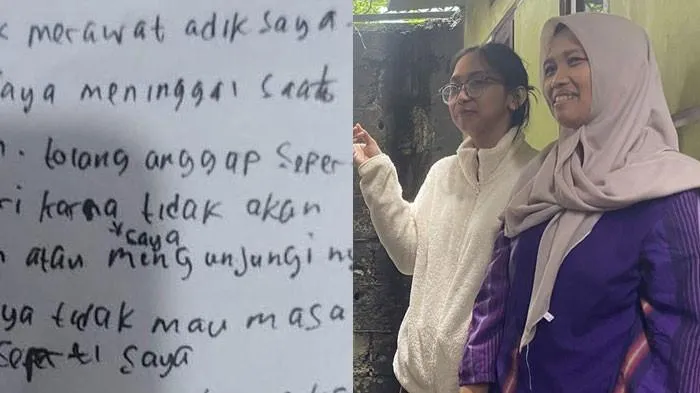 merawat adik saya
saya meninggal saat
tolong anggap seper
ri karna tidak akan
*saya
atau mengunjungi ny
ya tidak mau masa
seperti saya